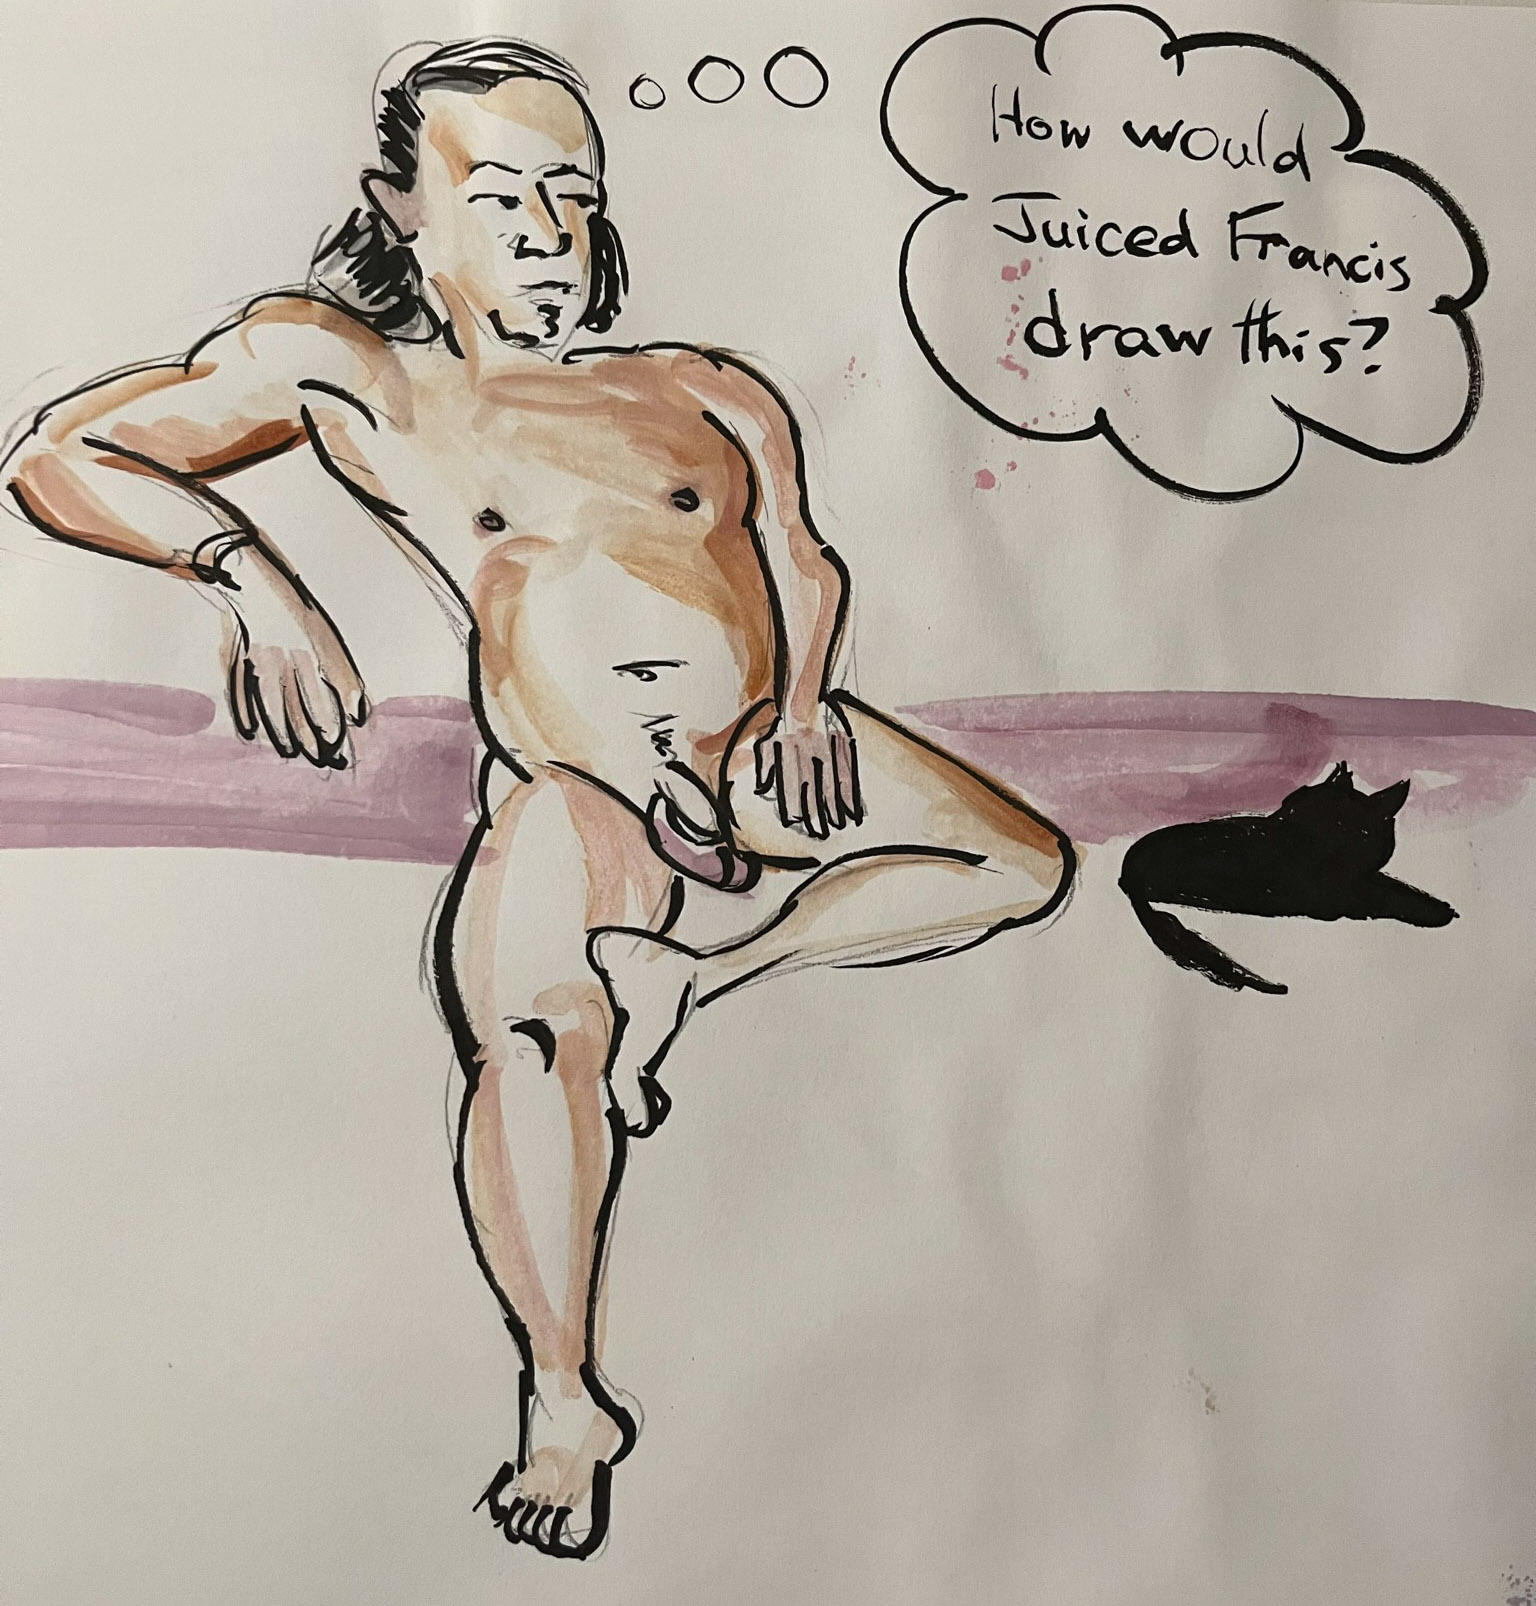 How would
Juiced Francis
draw this?